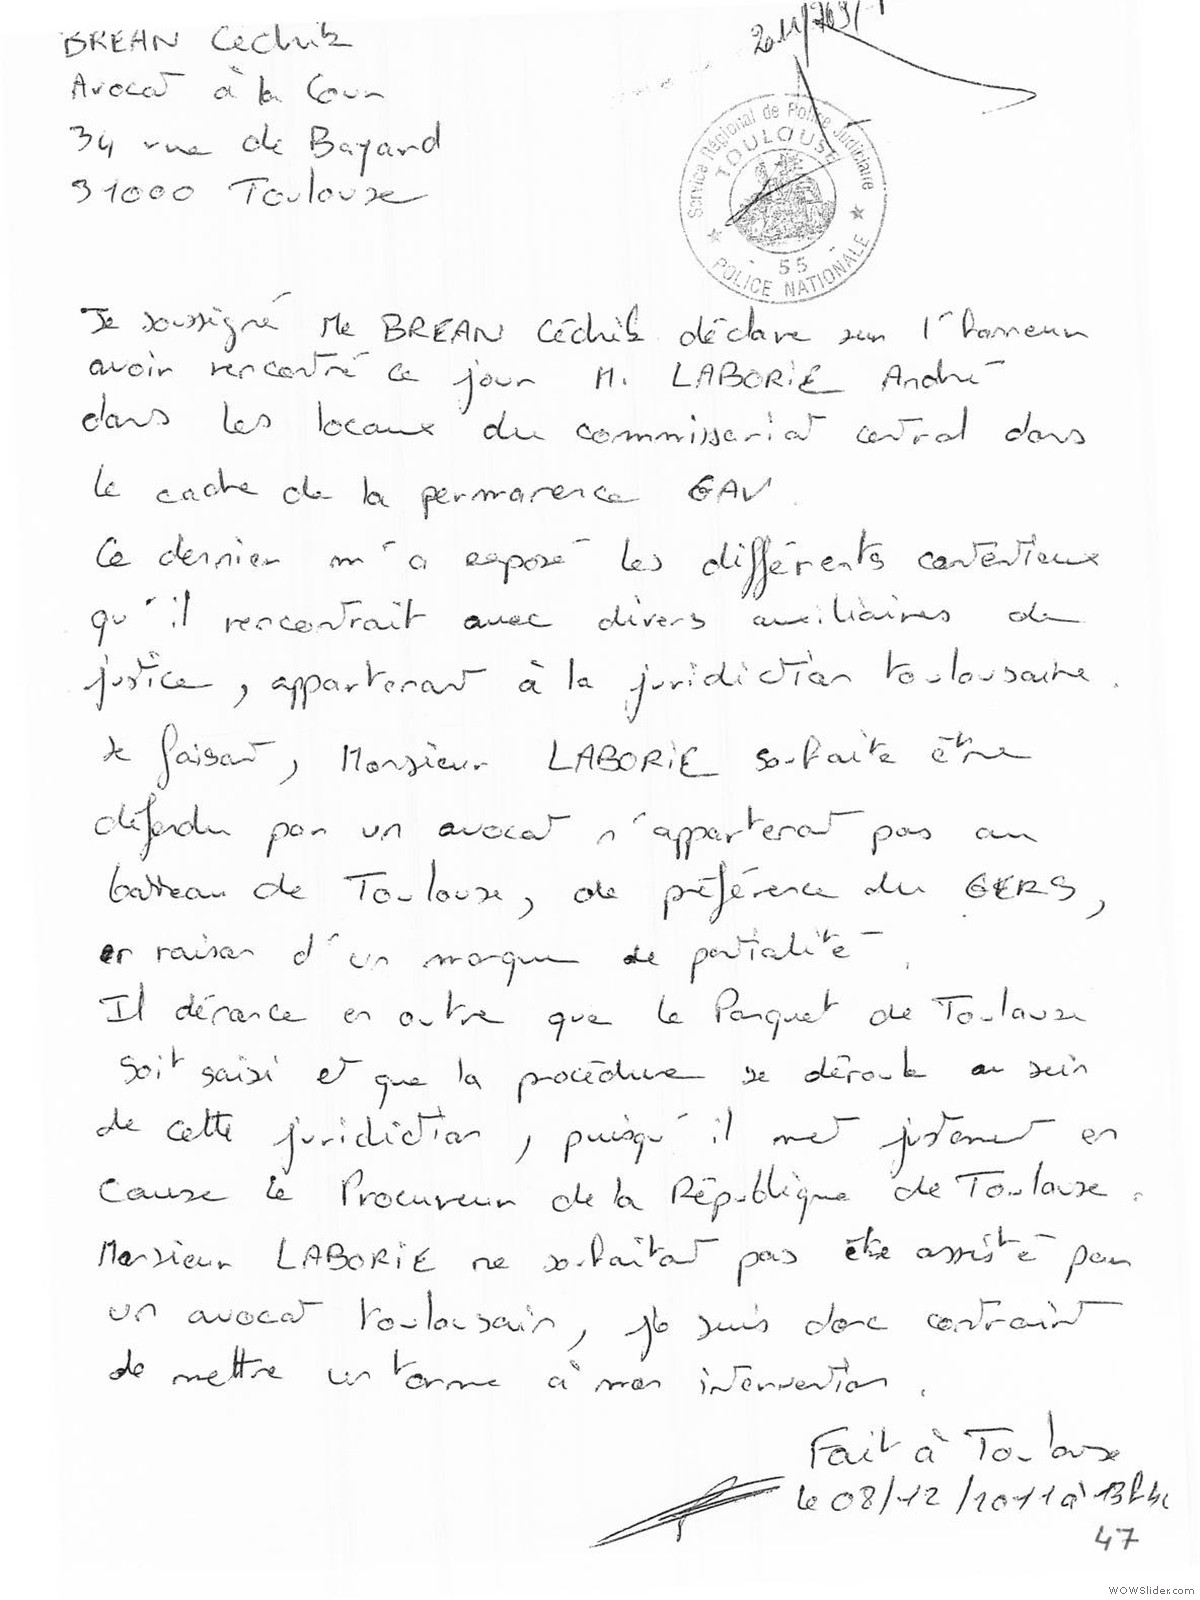 BREAN Cédrik
Avocat à la Cour
34 rue de Bayard
31000 Toulouse
2011/769/1
Service Régional de Police Judiciaire
TOULOUSE
- 55 -
POLICE NATIONALE
Je soussigné Me BREAN Cédrik déclare sur l'honneur
avoir rencontré ce jour M. LABORIE André
dans les locaux du commissariat central dans
le cadre de la permanence GAV.
Ce dernier m'a exposé les différents contentieux
qu'il rencontrait avec divers auxiliaires de
justice, appartenant à la juridiction toulousaine.
Se faisant, Monsieur LABORIE souhaite être
défendu par un avocat n'appartenant pas au
barreau de Toulouse, de préférence du GERS,
en raison d'un manque de partialité.
Il dénonce en outre que le Parquet de Toulouse
soit saisi et que la procédure se déroule au sein
de cette juridiction, puisqu'il met justement en
cause le Procureur de la République de Toulouse.
Monsieur LABORIE ne souhaitant pas être assisté par
un avocat toulousain, je suis donc contraint
de mettre un terme à mon intervention.
Fait à Toulouse
le 08/12/2011 à
47
WOWSlider.com